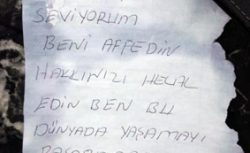 SEVİYORUM
BENİ AFFEDİN
HAKKINIZI HELAL
EDİN BEN BU
DÜNYADA YAŞAMAYI